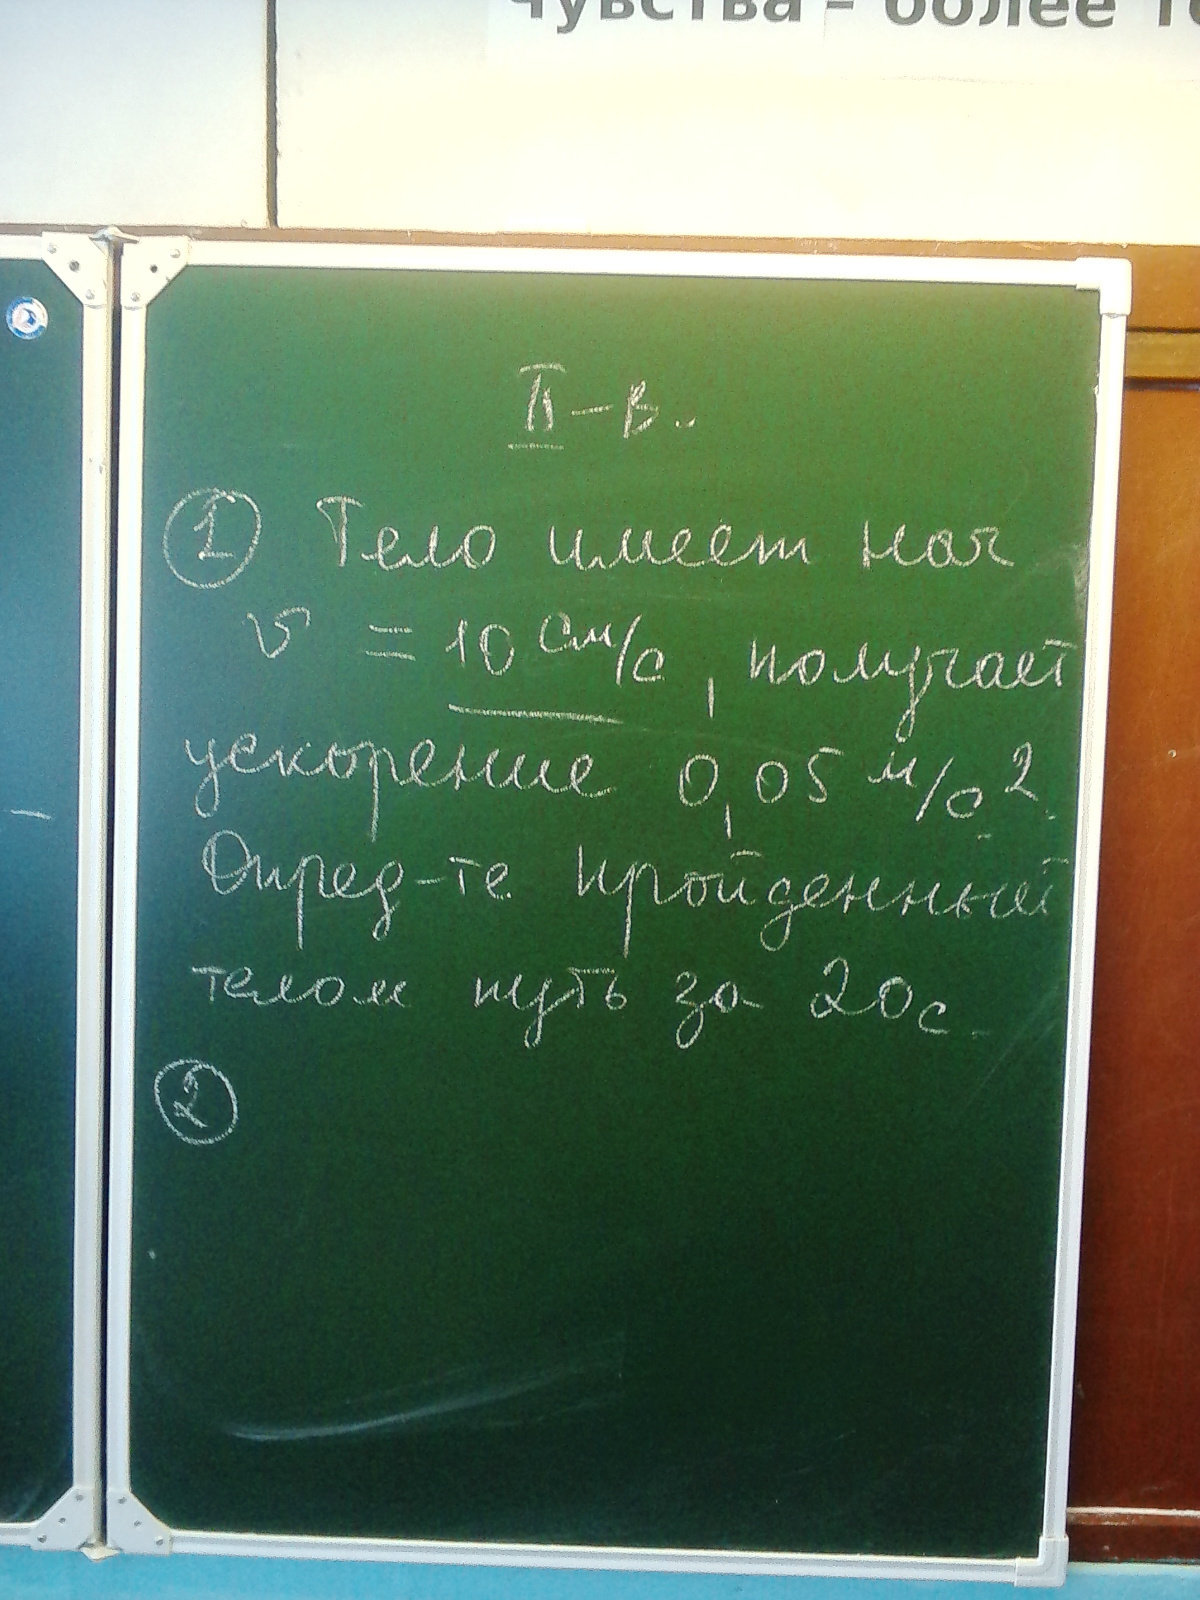 чувства - более
II-в.
① Тело имеет нач
v = 10 см/с, получает
ускорение 0,05 м/с²
Опред-те пройденный
телом путь за 20с.
②